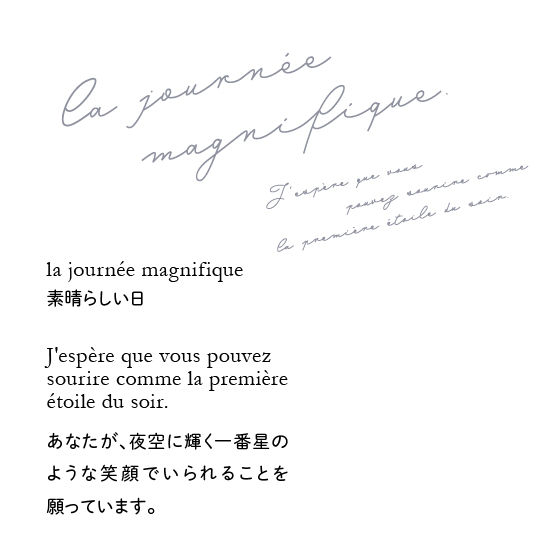 la journée
magnifique.
J'espère que vous
pouvez sourire comme
la première étoile du soir.
la journée magnifique
素晴らしい日
J'espère que vous pouvez
sourire comme la première
étoile du soir.
あなたが、夜空に輝く一番星の
ような笑顔でいられることを
願っています。